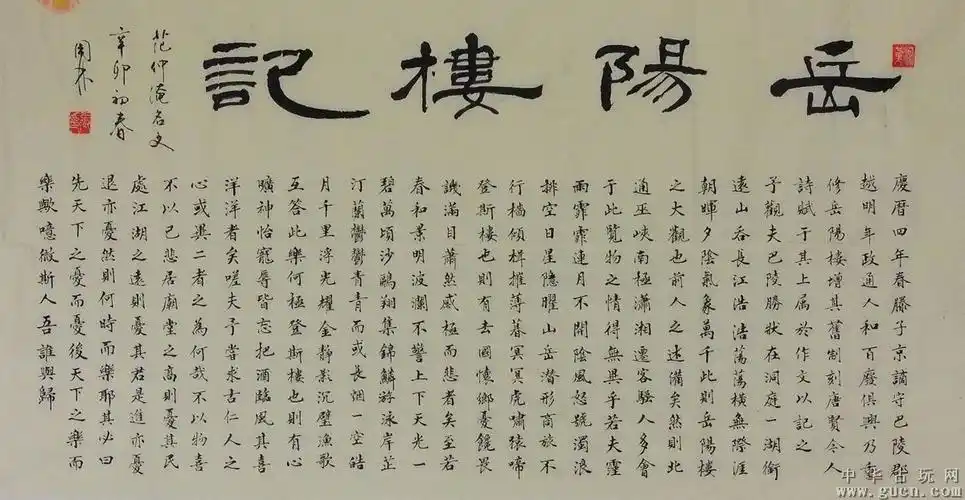 岳陽樓記
慶曆四年春滕子京謫守巴陵郡
越明年政通人和百廢俱興乃重
修岳陽樓增其舊制刻唐賢今人
詩賦于其上屬於作文以記之
予觀夫巴陵勝狀在洞庭一湖銜
遠山吞長江浩浩蕩蕩橫無際涯
朝暉夕陰氣象萬千此則岳陽樓
之大觀也前人之述備矣然則北
通巫峽南極瀟湘遷客騷人多會
于此覽物之情得無異乎若夫霪
雨霏霏連月不開陰風怒號濁浪
排空日星隱曜山岳潛形商旅不
行檣傾楫摧薄暮冥冥虎嘯猿啼
登斯樓也則有去國懷鄉憂饞畏
譏滿目蕭然感極而悲者矣至若
春和景明波瀾不驚上下天光一
碧萬頃沙鷗翔集錦鱗游泳岸芷
汀蘭鬱鬱青青而或長烟一空皓
月千里浮光耀金靜影沉璧漁歌
互答此樂何極登斯樓也則有心
曠神怡寵辱皆忘把酒臨風其喜
洋洋者矣嗟夫予嘗求古仁人之
心或異二者之為何哉不以物喜
不以己悲居廟堂之高則憂其民
處江湖之遠則憂其君是進亦憂
退亦憂然則何時而樂耶其必曰
先天下之憂而憂後天下之樂而
樂歟噫微斯人吾誰與歸
范仲淹名文
辛卯初春
中华古玩网
www.gucn.com